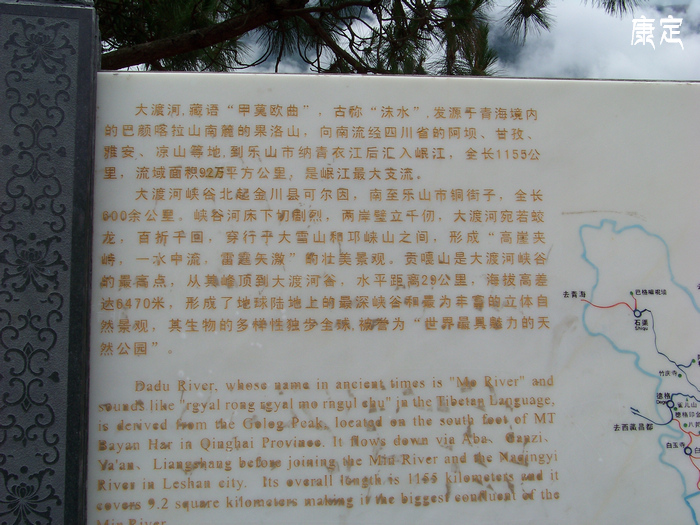 康定
大渡河,藏语“甲莫欧曲”,古称“沫水”,发源于青海境内
的巴颜喀拉山南麓的果洛山,向南流经四川省的阿坝、甘孜、
雅安、凉山等地,到乐山市纳青衣江后汇入岷江,全长1155公
里,流域面积92万平方公里,是岷江最大支流。
大渡河峡谷北起金川县可尔因,南至乐山市铜街子,全长
600余公里,峡谷河床下切剧烈,两岸壁立千仞,大渡河宛若蛟
龙,百折千回,穿行于大雪山和邛崃山之间,形成“高崖夹
峙,一水中流,雷霆矢激”的壮美景观。贡嘎山是大渡河峡谷
的最高点,从其峰顶到大渡河谷,水平距离29公里,海拔高差
达6470米,形成了地球陆地上的最深峡谷和最为丰富的立体自
然景观,其生物的多样性独步全球,被誉为“世界最具魅力的天
然公园”
Dadu River, whose name in ancient times is "Mo River" and
sounds like "rgyal rong rgyal mo rngul chu" in the Tibetan Language,
is derived from the Golog Peak, located on the south foot of MT
Bayan Har in Qinghai Province. It flows down via Aba, Ganzi,
Ya'an, Liangshang before joining the Min River and the Naqingyi
River in Leshan city. Its overall length is 1155 kilometers and it
covers 9.2 square kilometers making it the biggest confluent of the
Min River
去青海
巴格嘛呢墙
石渠
Shiqu
竹庆寺
德格
Dege
雀儿山
德格印经
去西藏昌都
八邦
白玉寺
白